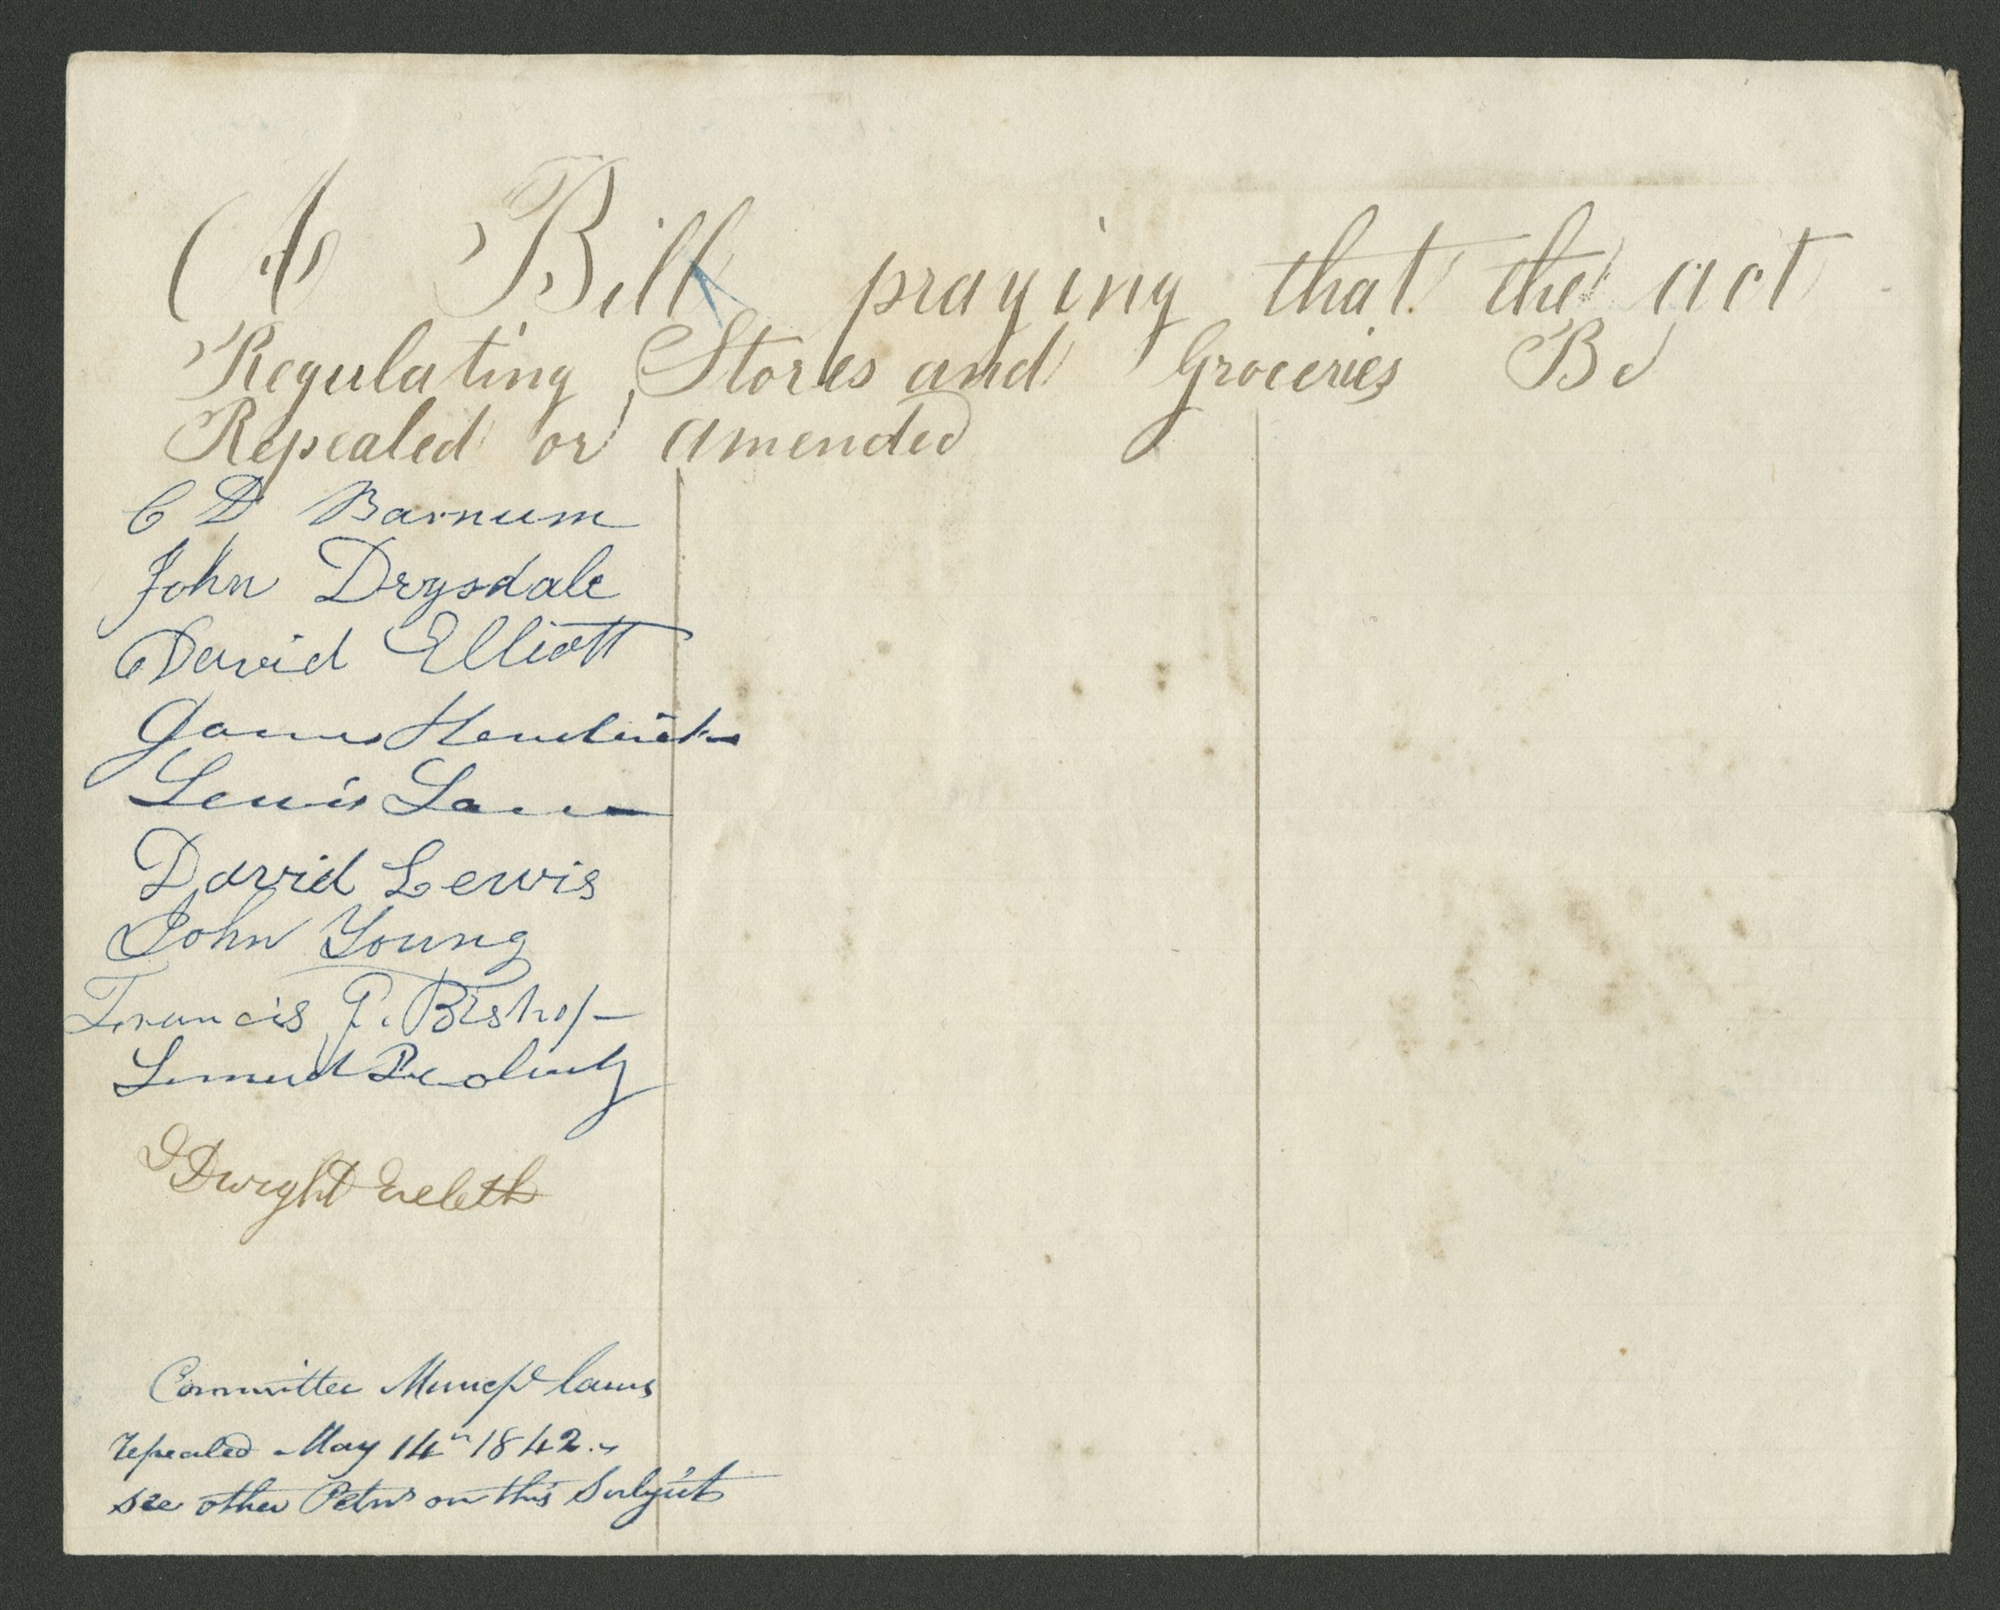 A Bill praying that the act
Regulating Stores and Groceries Be
Repealed or amended
C D Barnum
John Drysdale
David Elliott
James Hendricks
Lewis Law
David Lewis
John Young
Francis P. Bishop
Lemuel
Dwight Eveleth
Committee Municpl laws
repealed May 14th 1842.
see other Petns on this Subject